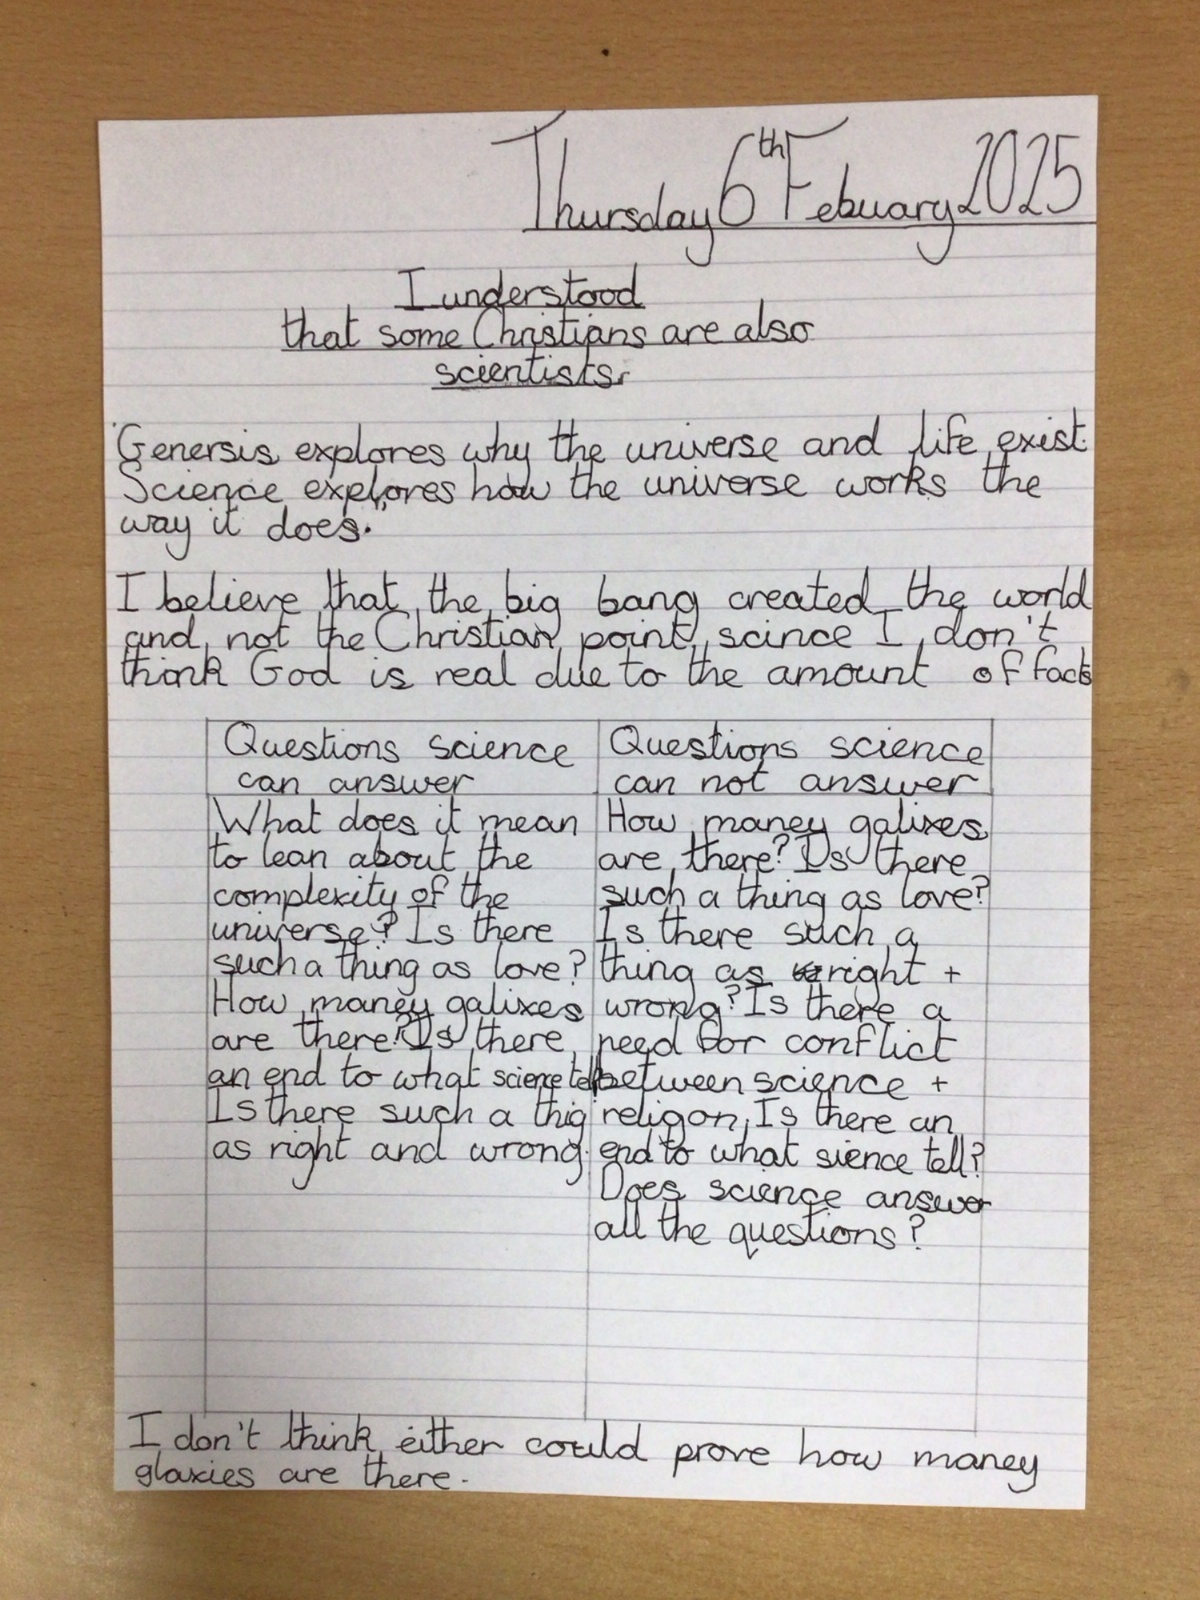 Thursday 6th Febuary 2025
I understood
that some Christians are also
scientists.
Genersis explores why the universe and life exist.
Science explores how the universe works the
way it does.
I believe that the big bang created the world
and not the Christian point scince I don't
think God is real due to the amount of facts
Questions science
can answer
What does it mean
to lean about the
complexity of the
universe? Is there
such a thing as love?
How maney galixes
are there? Is there
an end to what science tell
Is there such a thig
as right and wrong.
Questions science
can not answer
How maney galixes
are there? Is there
such a thing as love?
Is there such a
thing as right +
wrong? Is there a
need for conflict
between science +
religon, Is there an
end to what sience tell?
Does science answer
all the questions?
I don't think either could prove how maney
glaxies are there.